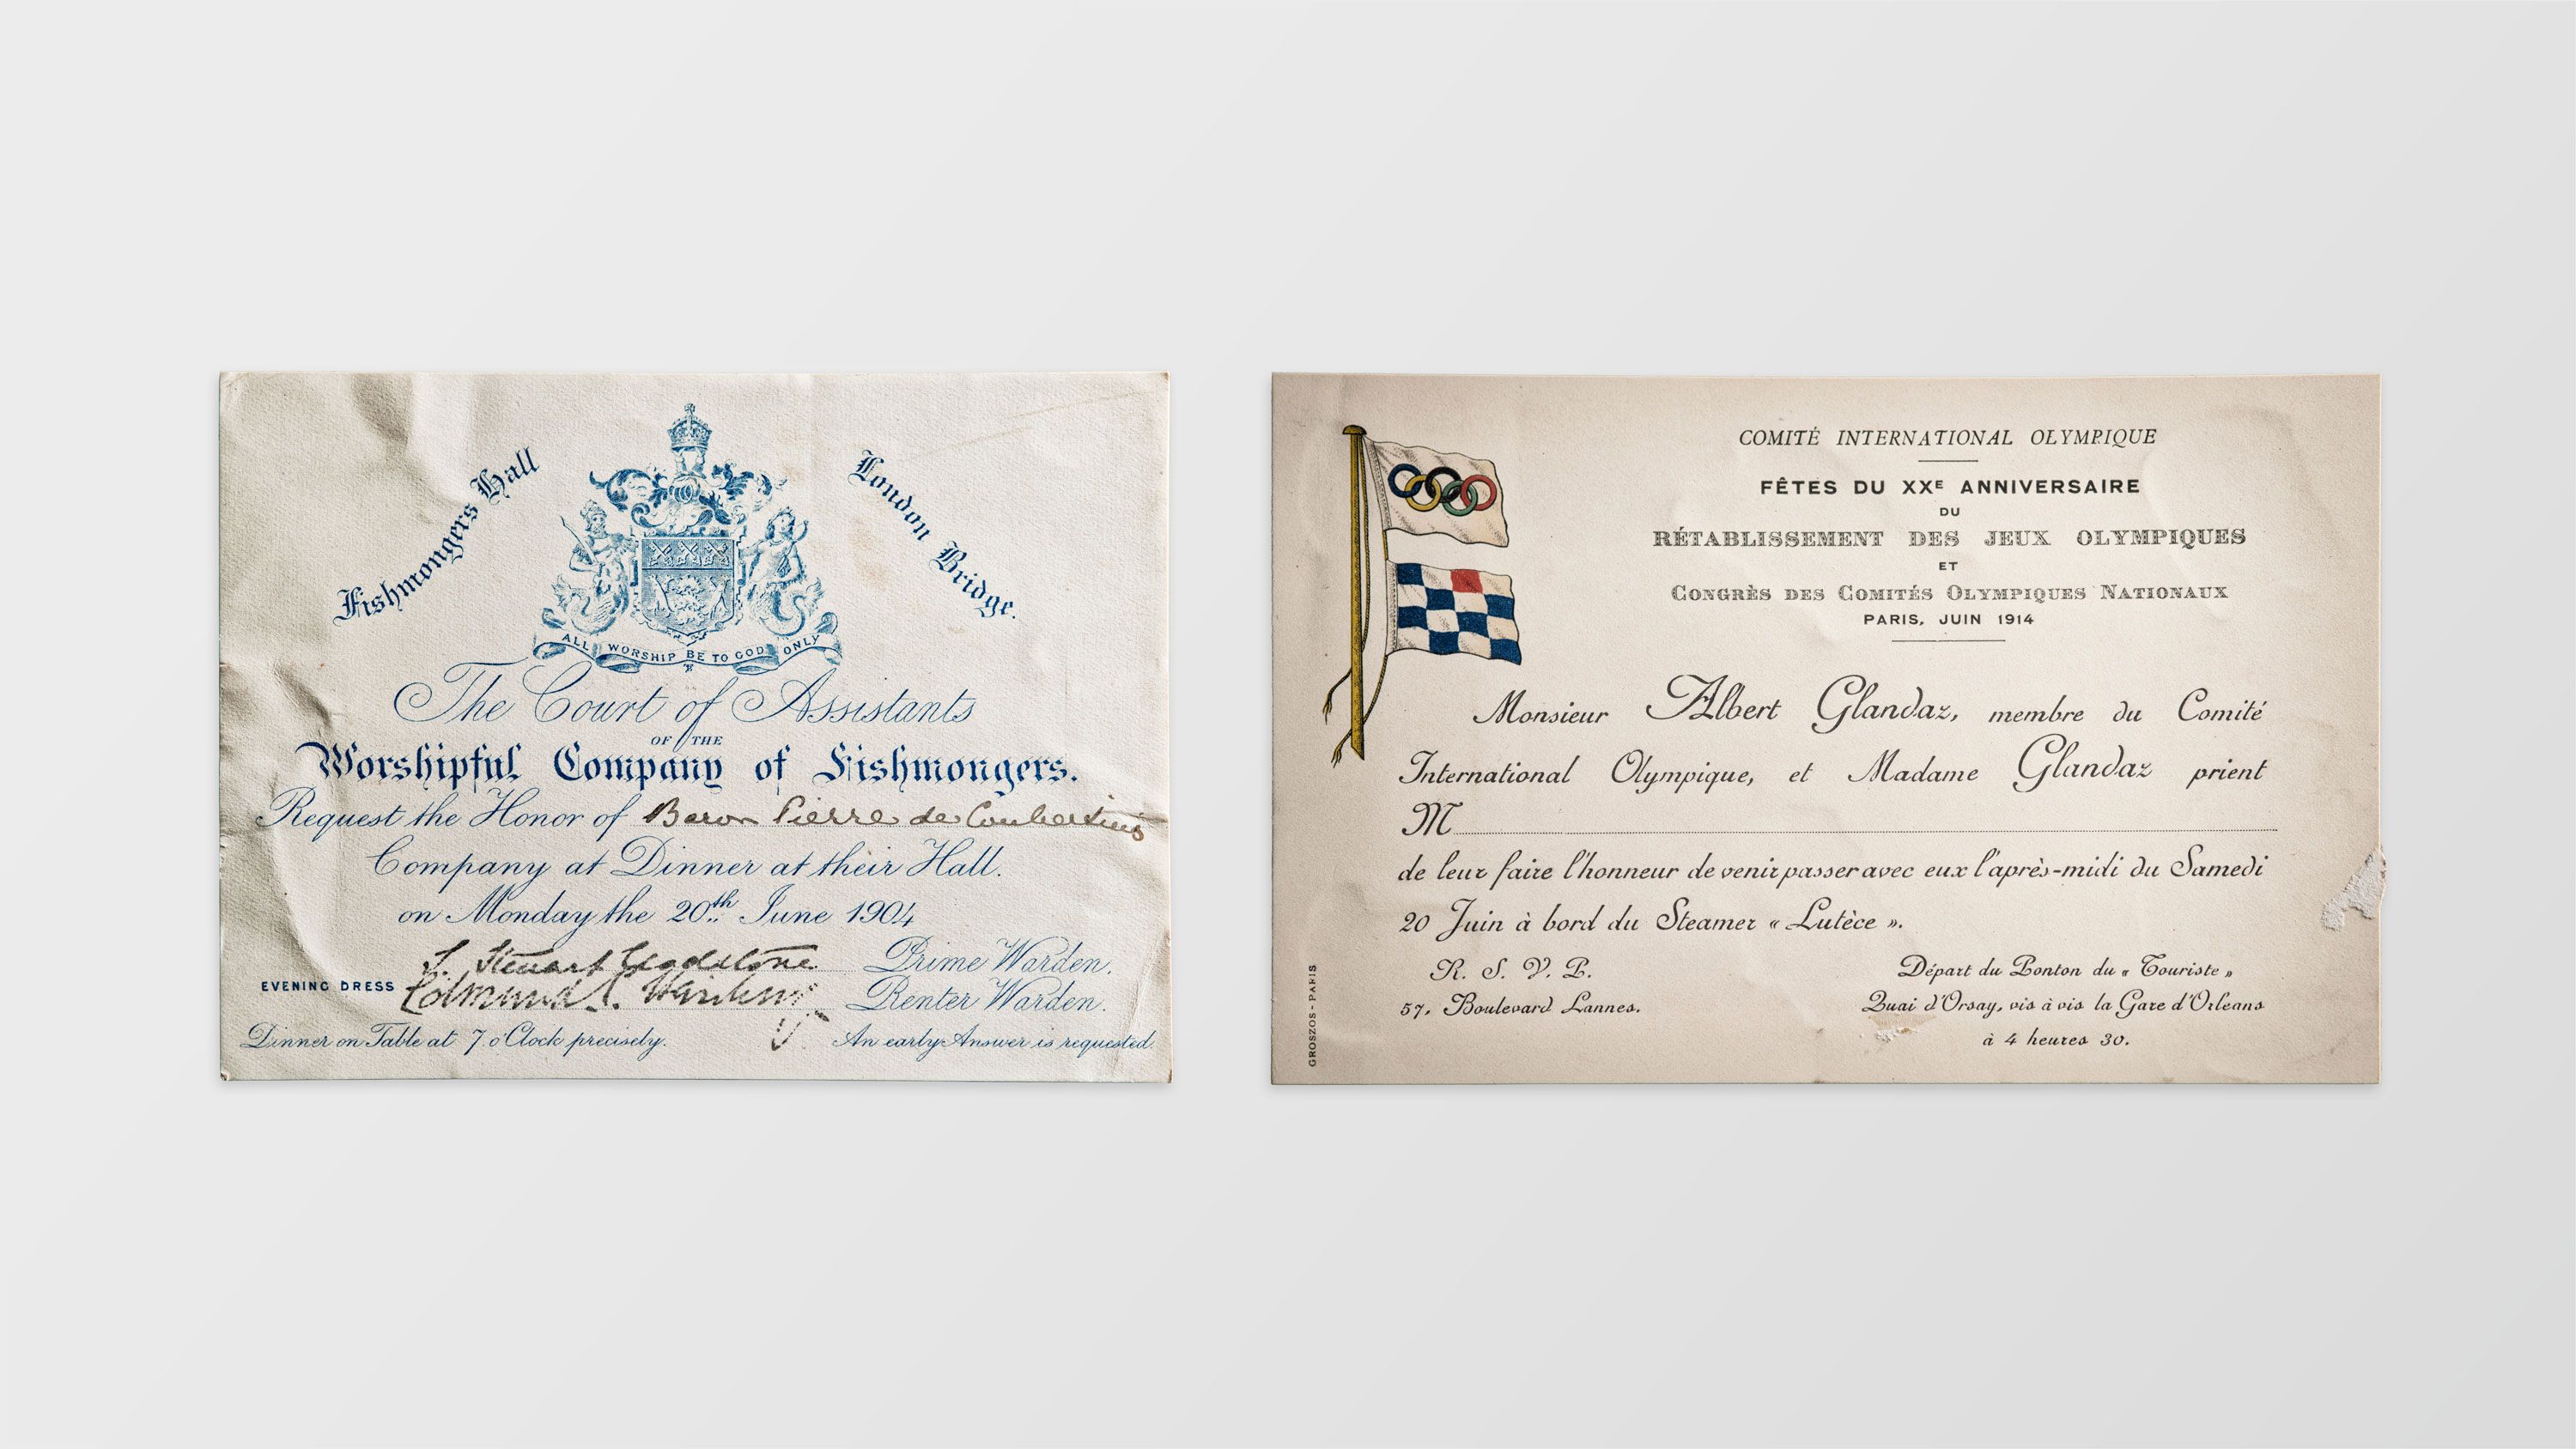 Fishmongers Hall
London Bridge.
ALL WORSHIP BE TO GOD ONLY
The Court of Assistants
OF THE
Worshipful Company of Fishmongers.
Request the Honor of Baron Pierre de Coubertin's
Company at Dinner at their Hall.
on Monday the 20th June 1904
J. Steuart Gladstone Prime Warden.
EVENING DRESS
Edmund S. Renter Warden.
Dinner on Table at 7. o'Clock precisely.
An early Answer is requested.
COMITÉ INTERNATIONAL OLYMPIQUE
FÊTES DU XXE ANNIVERSAIRE
DU
RÉTABLISSEMENT DES JEUX OLYMPIQUES
ET
CONGRÈS DES COMITÉS OLYMPIQUES NATIONAUX
PARIS, JUIN 1914
Monsieur Albert Glandaz, membre du Comité
International Olympique, et Madame Glandaz prient
M
de leur faire l'honneur de venir passer avec eux l'après-midi du Samedi
20 Juin à bord du Steamer « Lutèce ».
R. S. V. P.
57, Boulevard Lannes.
Départ du Ponton du « Touriste »
Quai d'Orsay, vis à vis la Gare d'Orleans
à 4 heures 30.
GROSZOS - PARIS